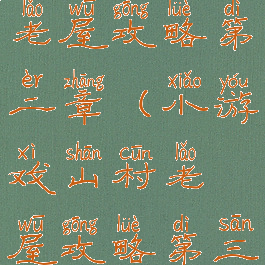 lǎo wū gōng lüè dì
老屋攻略第
èr zhāng xiǎo yóu
二章（小游
xì shān cūn lǎo
戏山村老
wū gōng lüè dì sān
屋攻略第三